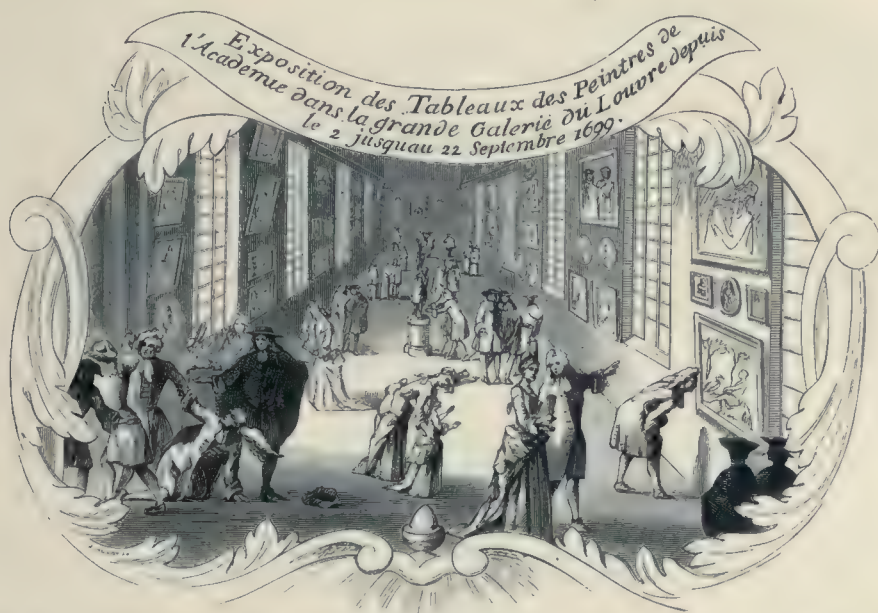 Exposition des Tableaux des Peintres de
l'Academie dans la grande Galerie du Louvre depuis
le 2 jusquau 22 Septembre 1699.